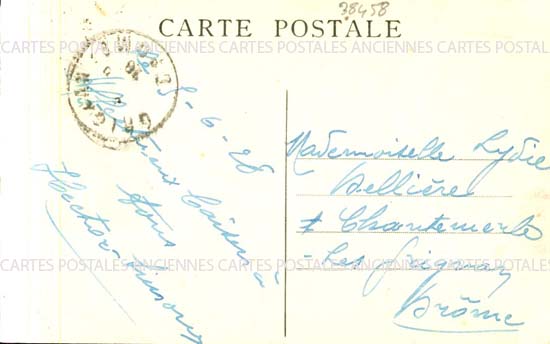 38458
CARTE POSTALE
CARTES POSTALES ANCIENNES CARTES POSTALES ANCIENNES CARTES POSTALES ANCIENNES
GRIGNAN
DROME
Le 5-6-28
Baisers à
tous
Hector
Mademoiselle Lydie
Sellière
à Chantemerle
-Les Grignan
Drôme
CARTES POSTALES ANCIENNES CARTES POSTALES ANCIENNES CARTES POSTALES ANCIENNES